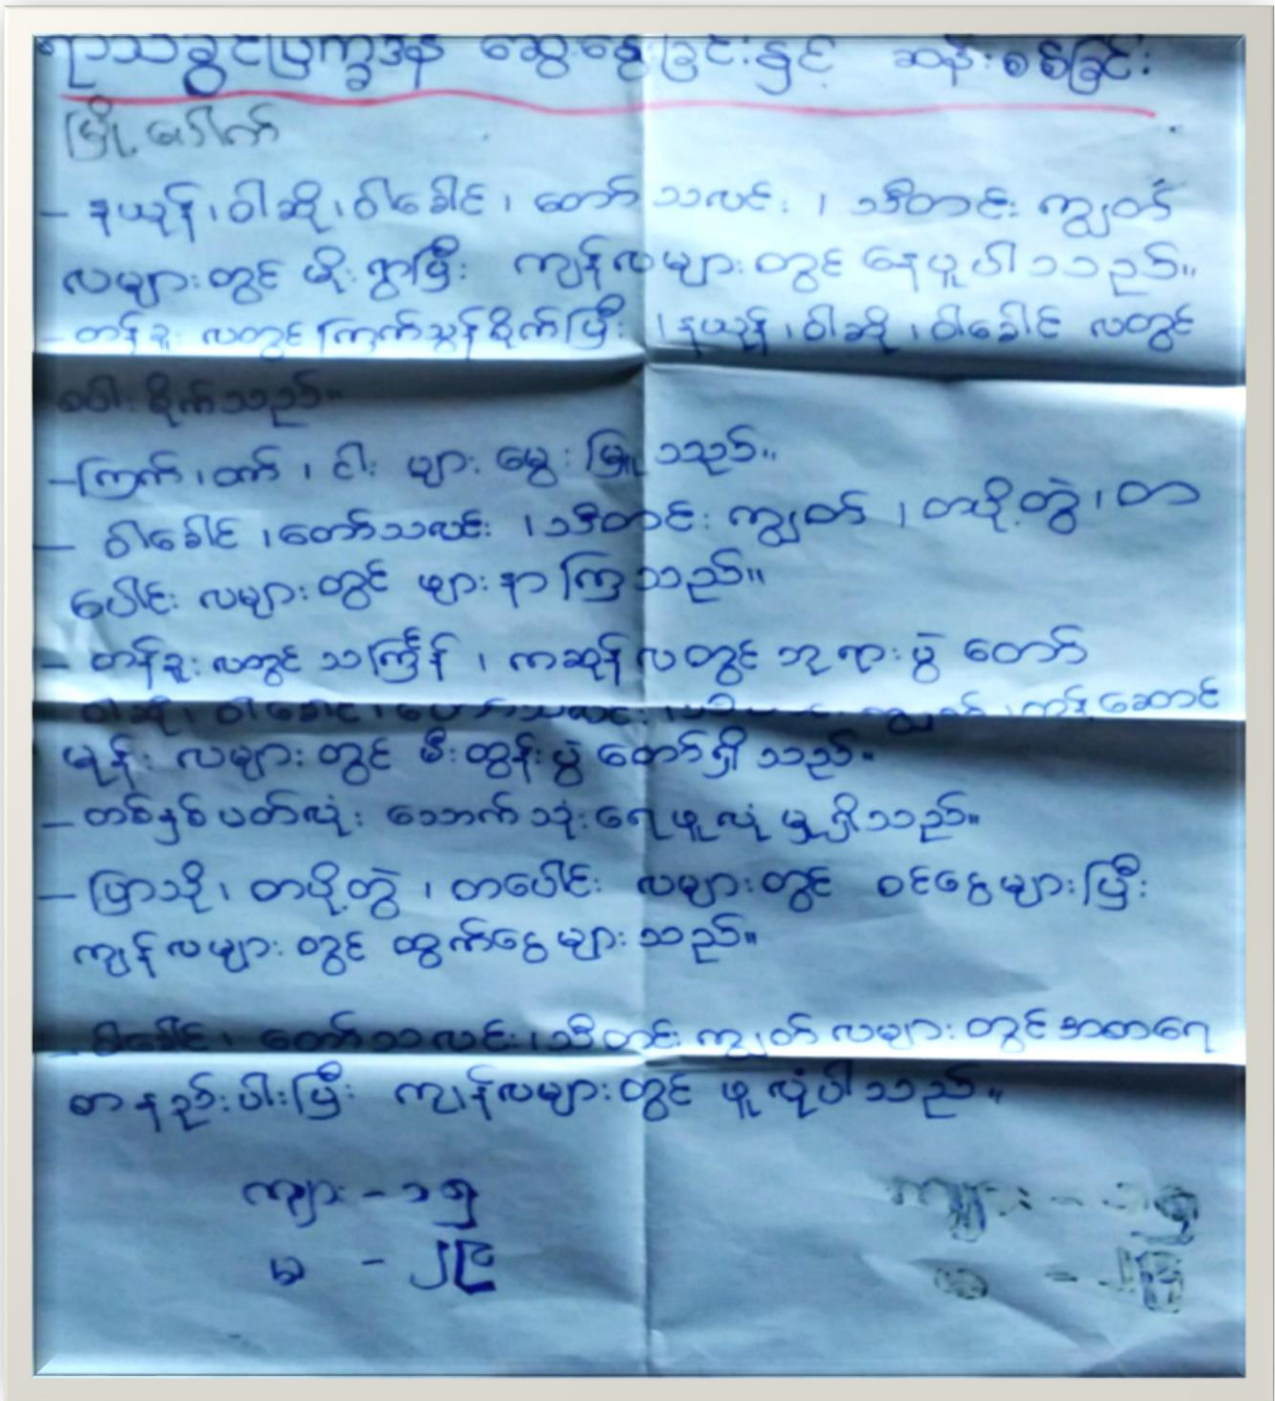 ရာသီခွင်ပြက္ခဒိန် ဆွေးနွေးခြင်းနှင့် ဆန်းစစ်ခြင်း
မြို့ပေါက်
- နယုန်၊ ဝါဆို၊ ဝါခေါင်၊ တော်သလင်း၊ သီတင်းကျွတ်
လများတွင် မိုးရွာပြီး ကျန်လများတွင် နေပူပါသည်။
- တန်ခူးလတွင် ကြက်သွန်စိုက်ပြီး၊ နယုန်၊ ဝါဆို၊ ဝါခေါင် လတွင်
စပါးစိုက်သည်။
- ကြက်၊ ဝက်၊ ငါးများ မွေးမြူသည်။
- ဝါခေါင်၊ တော်သလင်း၊ သီတင်းကျွတ်၊ တပို့တွဲ၊ တ
ပေါင်း လများတွင် ဖျားနာကြသည်။
- တန်ခူးလတွင် သင်္ကြန်၊ ကဆုန်လတွင် ဘုရားပွဲတော်
ဝါဆို၊ ဝါခေါင်၊ တော်သလင်း၊ သီတင်းကျွတ်၊ တန်ဆောင်
မုန်း လများတွင် မီးထွန်းပွဲတော်ရှိသည်။
- တစ်နှစ်ပတ်လုံး သောက်သုံးရေဖူလုံမှုရှိသည်။
- ပြာသို၊ တပို့တွဲ၊ တပေါင်း လများတွင် ဝင်ငွေများပြီး
ကျန်လများတွင် ထွက်ငွေများသည်။
- ဝါခေါင်၊ တော်သလင်း၊ သီတင်းကျွတ်လများတွင် အစားရေ
စာနည်းပါးပြီး ကျန်လများတွင် ဖူလုံပါသည်။
ကျား - ၁၅
မ - ၂၄